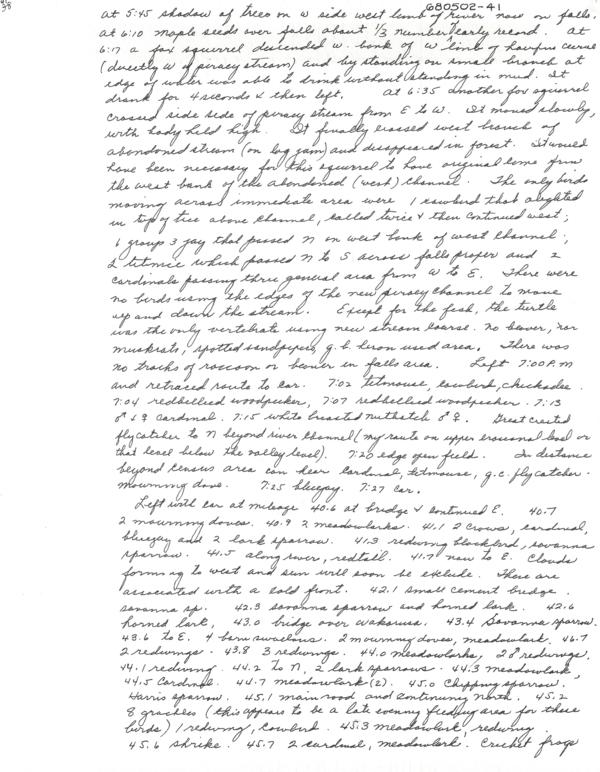 680502-41
at 5:45 shadow of trees on W side west limb of river now on falls.
at 6:10 maple seeds over falls about 1/3 number early record. At
6:17 a fox squirrel descended W. bank of W limb of
(directly W of piracy stream) and by standing on small branch at
edge of water was able to drink without standing in mud. It
drank for 4 seconds & then left. At 6:35 another fox squirrel
crossed side side of piracy stream from E to W. It moved slowly,
with body held high. It finally crossed west branch of
abandoned stream (on log jam) and disappeared in forest. It would
have been necessary for this squirrel to have original come from
the west bank of the abandoned (west) channel. The only birds
moving across immediate area were 1 cowbird that alighted
in top of tree above channel, called twice & then continued west;
1 group 3 jay that passed N on west bank of west channel;
2 titmice which passed N to S across falls proper and 2
cardinals passing thru general area from W to E. There were
no birds using the edges of the new piracy channel to move
up and down the stream. Except for the fish, the turtle
was the only vertebrate using new stream course. No beaver, nor
muskrats, spotted sandpipers, g. b. heron used area. There was
no tracks of raccoon or beaver in falls area. Left 7:00 P.M
and retraced route to car. 7:02 titmouse, cowbird, chickadee.
7:04 redbellied woodpecker, 7:07 redbellied woodpecker. 7:13
♂ & ♀ cardinal. 7:15 white breasted nuthatch ♂ ♀. Great crested
flycatcher to N beyond river channel (my route on upper erosional level or
that level below the valley level). 7:20 edge open field. In distance
beyond census area can hear cardinal, titmouse, g.c. flycatcher.
mourning dove. 7:25 bluejay. 7:27 car.
Left with car at mileage 40.6 at bridge & continued E. 40.7
2 mourning doves. 40.9 2 meadowlarks. 41.1 2 crows, cardinal,
bluejay and 2 lark sparrow. 41.3 redwing blackbird, savanna
sparrow. 41.5 along river, redtail. 41.7 now to E. Clouds
forming to west and sun will soon be exclude. These are
associated with a cold front. 42.1 small cement bridge.
savanna sp. 42.3 savanna sparrow and horned lark. 42.6
horned lark, 43.0 bridge over Wakarusa. 43.4 Savanna sparrow.
43.6 to E. 4 barn swallows. 2 mourning doves, meadowlark. 46.7
2 redwings. 43.8 3 redwings. 44.0 meadowlarks, 2 ♂ redwings.
44.1 redwing. 44.2 to N, 2 lark sparrows. 44.3 meadowlark,
44.5 Cardinal. 44.7 meadowlark (2). 45.0 Chipping sparrow,
Harris sparrow. 45.1 main road and continuing north. 45.2
8 grackles (this appears to be a late evening feeding area for these
birds) 1 redwing, cowbird. 45.3 meadowlark, redwing.
45.6 shrike. 45.7 2 cardinal, meadowlark. Cricket frogs